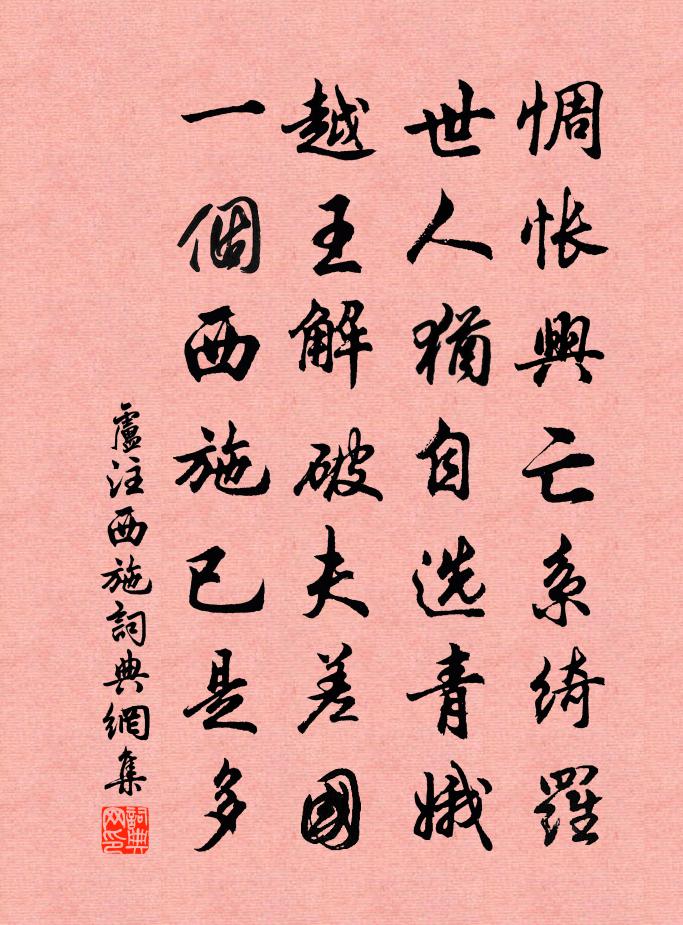 惆悵興亡系綺羅
世人猶自选青娥
越王解破夫差國
一個西施已是多
盧注西施詞典網集
詞典
网印